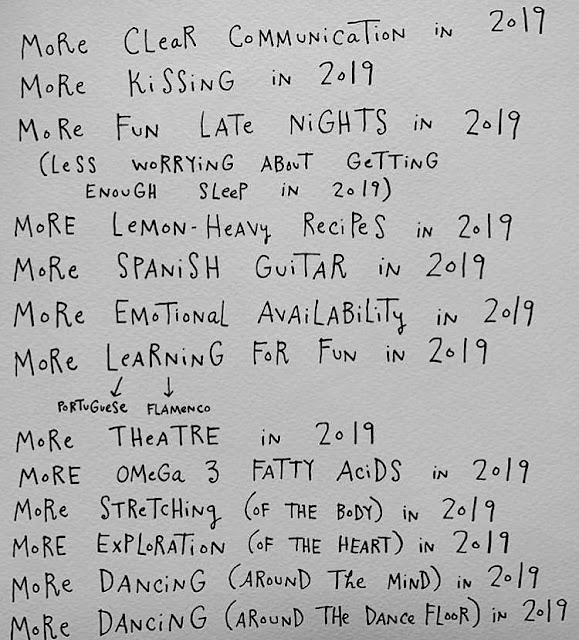 MoRe CLeaR COMMUNiCaTiON iN 2019
MoRe KiSSiNG iN 2019
MoRe FUN LATe NiGHTS iN 2019
(LeSS WORRYiNG ABOUT GeTTiNG
ENOUGH SLeeP iN 2019)
MoRE LeMON-HeAVy ReCiPeS iN 2019
MoRe SPANiSH GUiTAR iN 2019
MoRe EMoTiONaL AVAiLABiLiTy iN 2019
MoRe LeARNiNG FoR FUN iN 2019
↙ ↓
PoRTUGUeSe FLAMeNCO
MoRe THeATRE iN 2019
MoRE OMeGa 3 FATTY ACiDS iN 2019
MoRe STReTCHiNg (OF THE BoDY) iN 2019
MoRE EXPLoRATiON (OF THE HEART) iN 2019
MoRe DANCiNG (AROUND THe MiND) iN 2019
MoRe DANCiNG (AROUND THe DANCe FLOOR) iN 2019